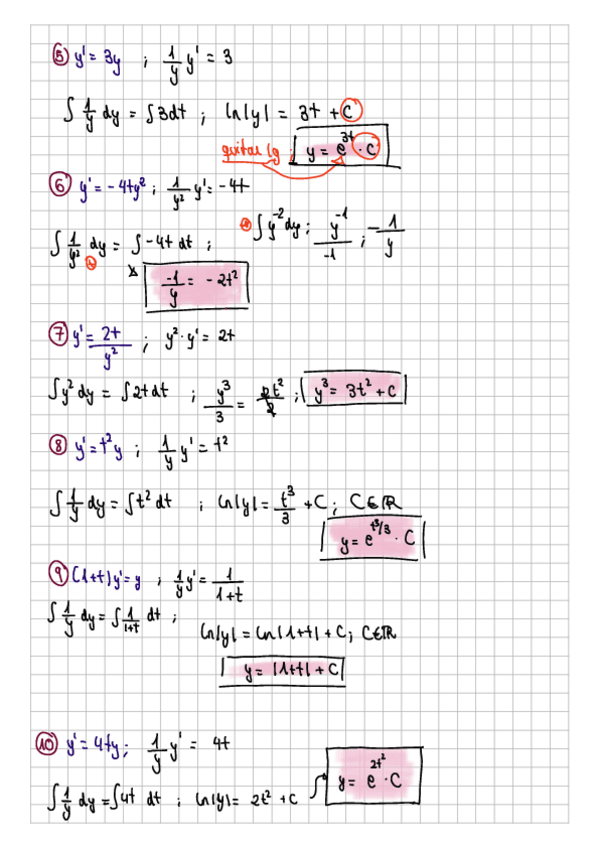 ⑤ y' = 3y ; 1/y y' = 3
∫ 1/y dy = ∫3dt ; ln|y| = 3t + C
quitar lg ; y = e^3t · C
⑥ y' = -4ty² ; 1/y² y' = -4t
∫ 1/y² dy = ∫ -4t dt ; ∫ y^-2 dy ; y^-1/-1 ; -1/y
-1/y = -2t²
⑦ y' = 2t/y² ; y² · y' = 2t
∫ y² dy = ∫ 2t dt ; y³/3 = 2t²/2 ; y³ = 3t² + C
⑧ y' = t²y ; 1/y y' = t²
∫ 1/y dy = ∫ t² dt ; ln|y| = t³/3 + C ; C∈ℝ
y = e^t³/3 · C
⑨ (1+t)y' = y ; 1/y y' = 1/1+t
∫ 1/y dy = ∫ 1/1+t dt ;
ln|y| = ln|1+t| + C ; C∈ℝ
y = |1+t| + C
⑩ y' = 4ty ; 1/y y' = 4t
∫ 1/y dy = ∫ 4t dt ; ln|y| = 2t² + C
y = e^2t² · C